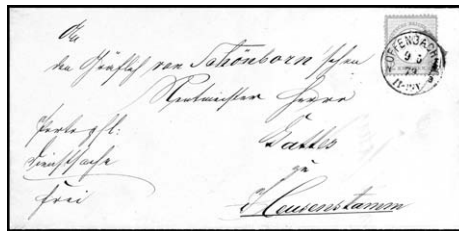 An
den Gräflich von Schönborn'schen
Rentmeister Herrn
Gattes
zu
Heusenstamm
Portopfl:
Dienstsache
frei
OFFENBACH
9 5